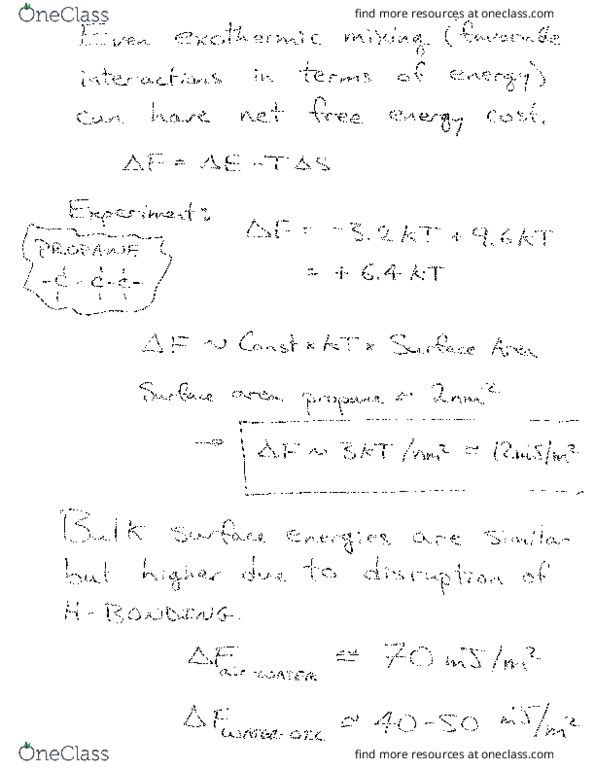 OneClass
find more resources at oneclass.com
Even exothermic mixing (favorable
interactions in terms of energy)
can have net free energy cost.
ΔF = ΔE - TΔS
Experiment:
PROPANE
-C-C-C-
ΔF = -3.2 kT + 9.6 kT
= + 6.4 kT
ΔF ~ Const × kT × Surface Area
Surface area propane ~ 2nm²
→ ΔF ~ 3kT/nm² ≈ 12mJ/m²
Bulk surface energies are similar
but higher due to disruption of
H-BONDING.
ΔF AIR-WATER ≈ 70 mJ/m²
ΔF WATER-OIL ≈ 40-50 mJ/m²
OneClass
find more resources at oneclass.com